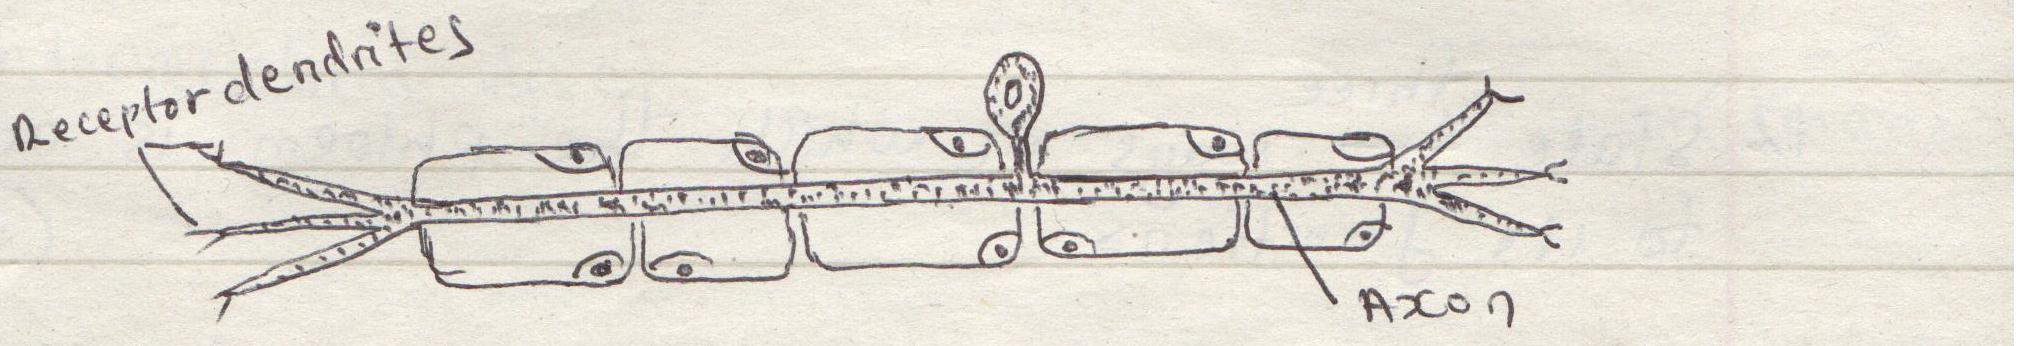 Receptor dendrites
Axon